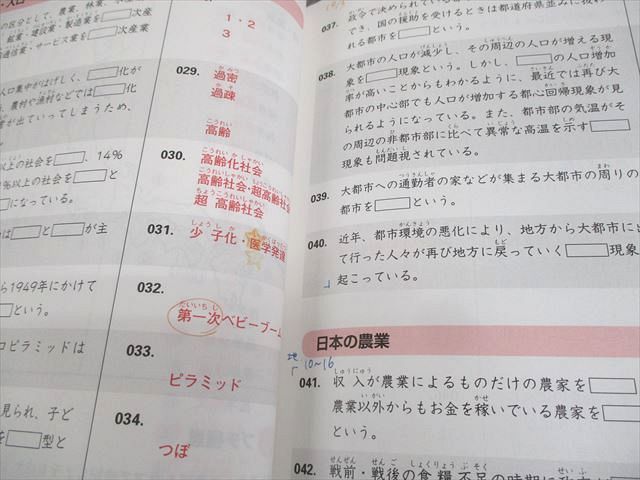 の区分として、農業、林業、水
、鉱業・建設業・製造業を□次産
通信業・サービス業を□次産業
人口集中がはげしく、□化が
、農村や漁村などでは□化
が出ていってしまうため、
以上の社会を□、14%
%以上の社会を□と
□になっている。
は□と□が主
ら1949年にかけて
□という。
ロピラミッドは
見られ、子ど
□型と
1・2
3
029.
過密
過疎
高齢
030.
高齢化社会
高齢社会・超高齢社会
超高齢社会
031.
少子化・医学発達
032.
第一次ベビーブーム
033.
ピラミッド
034.
つぼ
037.
政令で決められている都
でき、国の援助を受けるときは都道府県並みに扱わ
れる都市を□という。
038.
大都市の人口が減少し、その周辺の人口が増える現
象を□現象という。しかし、□の人口増加
率が高いことからもわかるように、最近では再び大
都市の中心部でも人口が増加する都心回帰現象が見
られるようになっている。また、都市部の気温がそ
の周辺の非都市部に比べて異常な高温を示す□
現象も問題視されている。
039.
大都市への通勤者の家などが集まる大都市の周りの
都市を□という。
040.
近年、都市環境の悪化により、地方から大都市に出
て行った人々が再び地方に戻っていく□現象
起こっている。
日本の農業
地
「10~16
041.
収入が農業によるものだけの農家を□
農業以外からもお金を稼いでいる農家を□
という。
042.
戦前・戦後の食糧不足の時期に